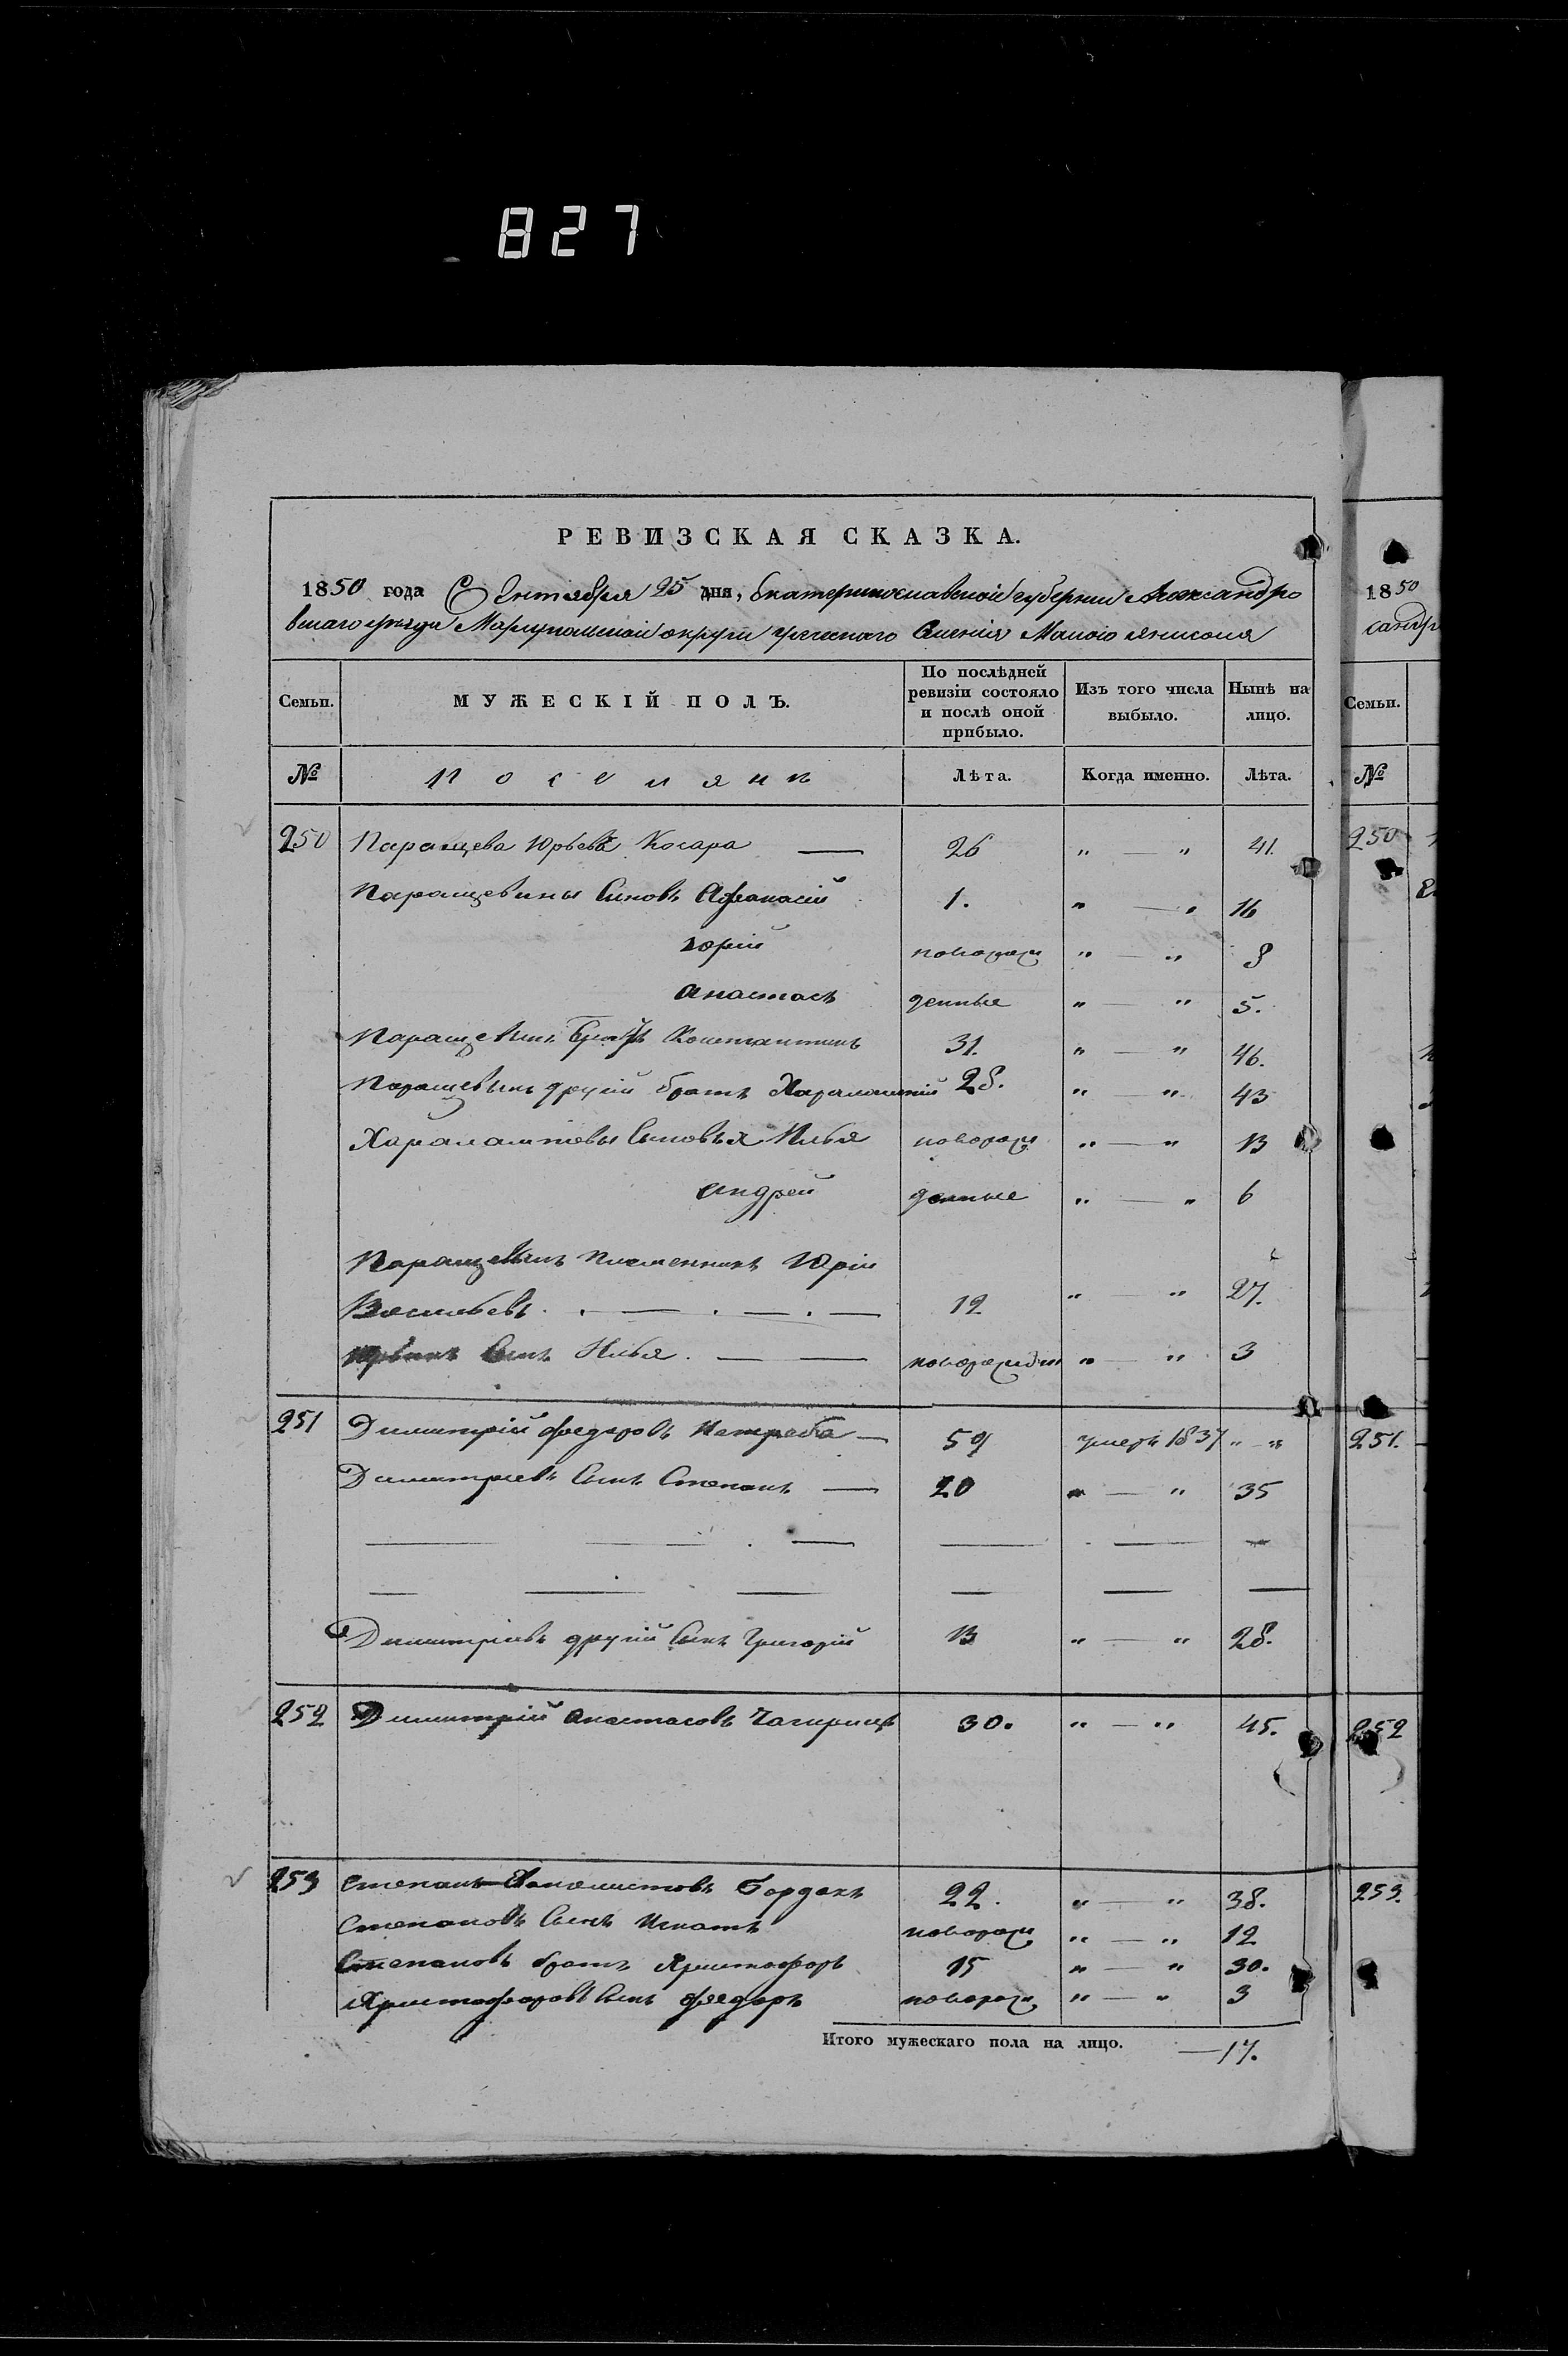 827
РЕВИЗСКАЯ СКАЗКА.
1850 года Октября 25 дня, Екатеринославской губернии Александро
вскаго уезда Мариупольской округи греческаго Селенія Малою Янисоля
Семьи. МУЖЕСКІЙ ПОЛЪ. По послѣдней ревизіи состояло и послѣ оной прибыло. Изъ того числа выбыло. Нынѣ на лицо.
№ Поселянъ Лѣта. Когда именно. Лѣта.
250 Паращева Юрьева Косара — 26 " — " 41.
Паращевины Сыновъ Афанасій 1. " — " 16
Юрій новорож " — " 8
Анастасъ денные " — " 5.
Паращевинъ братъ Константинъ 31. " — " 46.
Паращевинъ другій братъ Харалампій 28. " — " 43
Харалампіевы Сыновья Илья новорож " — " 13
Андрей денные " — " 6
Паращевинъ племенникъ Юрій
Васильевъ . — . — . — 12 " — " 27.
Сынъ Илья. — — новорожден " — " 3
251 Димитрій Федоровъ — 59 умеръ 1837 " — "
Димитріевъ Сынъ Степанъ — 20 " — " 35
Димитріевъ другій Сынъ Григорій 13 " — " 28.
252 Димитрій Анастасовъ 30. " — " 45.
253 Степанъ Бордакъ 22. " — " 38.
Степановъ Сынъ Игнатъ новорож " — " 12
Степановъ братъ Христофоръ 15 " — " 30.
Христофоровъ Сынъ Федоръ новорож " — " 3
Итого мужескаго пола на лицо. — 17.
1850
сандр
Семьи.
№
250
251.
252
253.